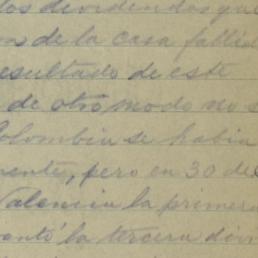 los dividendos que
de la casa falli
resultado de este
de otro modo no s
Colombia se habia
mente, pero en 30 de
Valencia la primera
antó la tercera divi